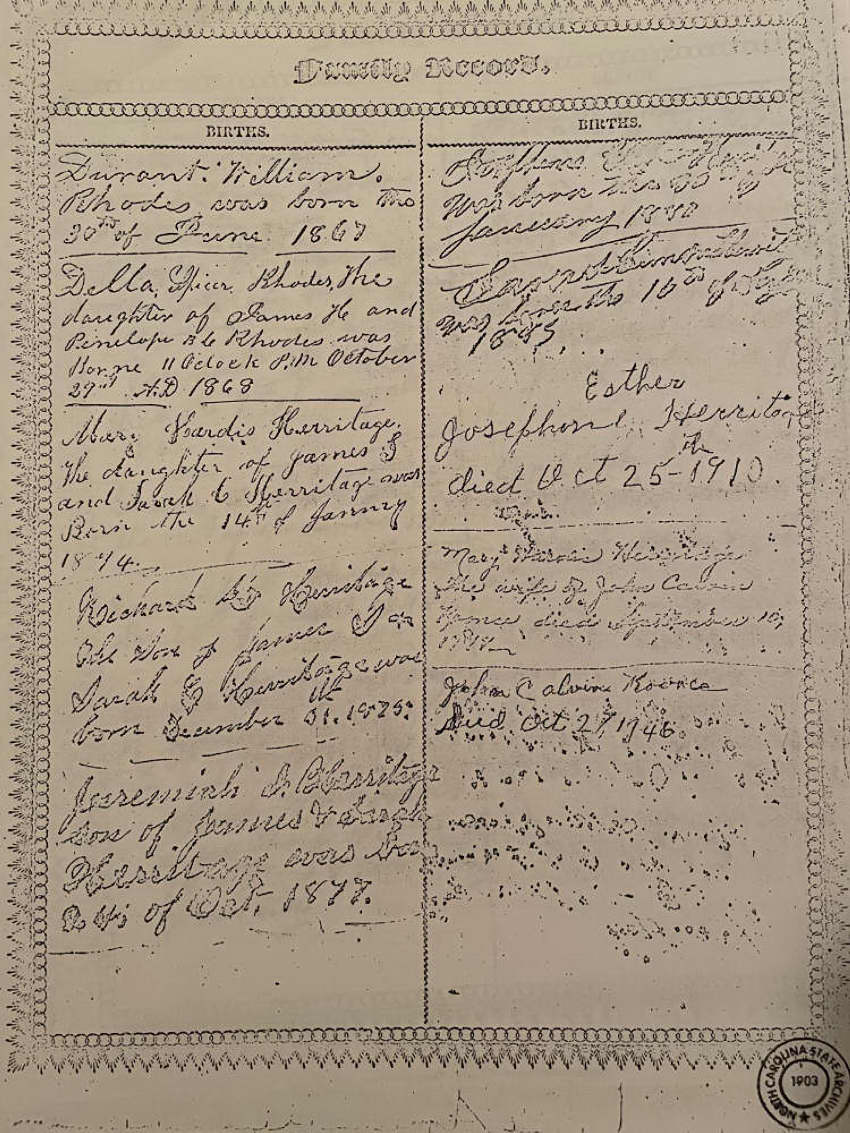 Family Record.
BIRTHS.
Durant William.
Rhodes was born the
30th of June 1867
Della Spicer Rhodes, the
daughter of James H and
Penelope Rhodes was
Borne 11 Oclock P.M October
29th A.D. 1868
Mary Vardis Herritage.
the daughter of James S
and Sarah C Herritage was
Born the 14th of January
1874.
Richard Herritage
the son of James S an
Sarah E Herritage was
born December 31. 1875.
Jeremiah S. Herritage
son of James & Sarah
Herritage was
of Oct. 1877.
BIRTHS.
Stephens
Was born the 30th of
January 1880
was born the 16th of
1885
Esther
Josephine Herritage
died Oct 25th 1910.
Mary Vardis Herritage
the wife of John Calvin
Koonce died September 10,
John Calvin Koonce
Died Oct 27, 1946.
NORTH CAROLINA STATE ARCHIVES
1903